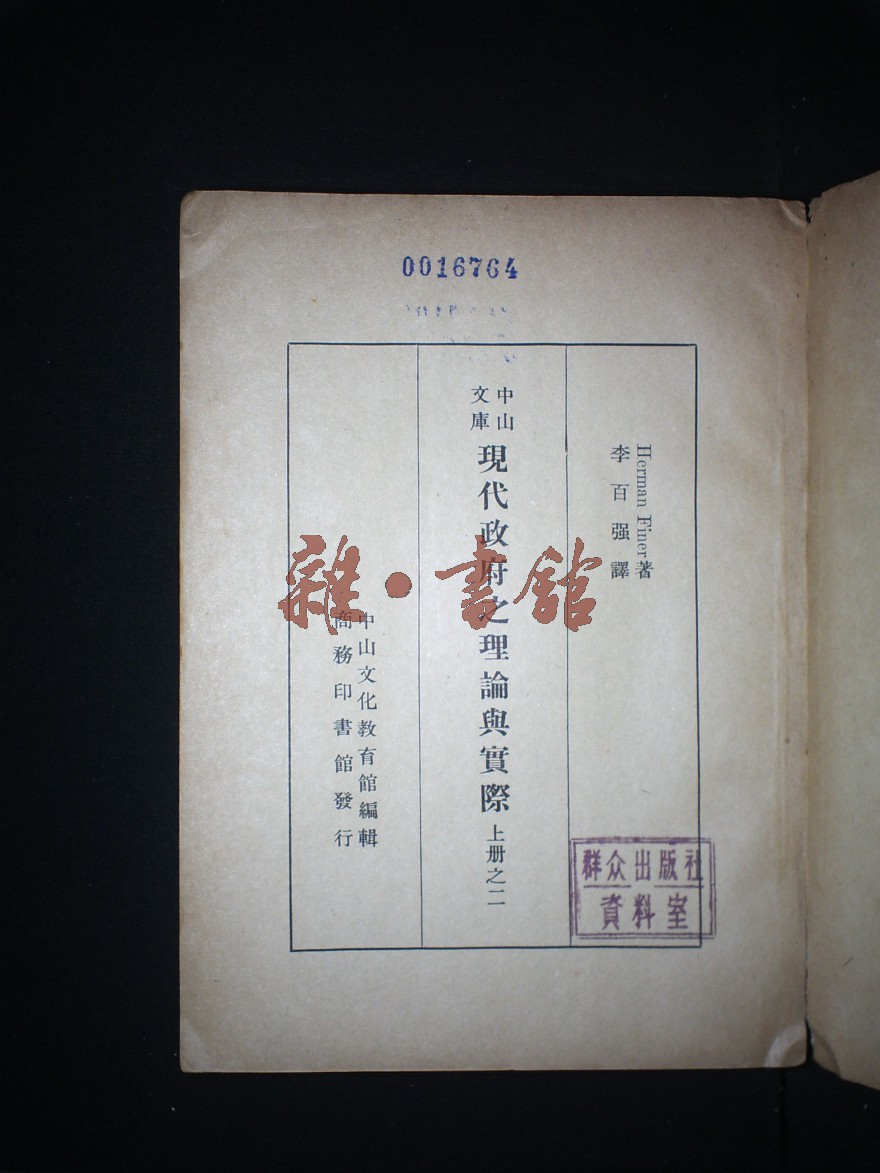 0016764
Herman Finer著
李百强譯
中山
文庫
現代政府之理論與實際 上册之二
中山文化教育館編輯
商務印書館發行
雜·書館
群众出版社
資料室